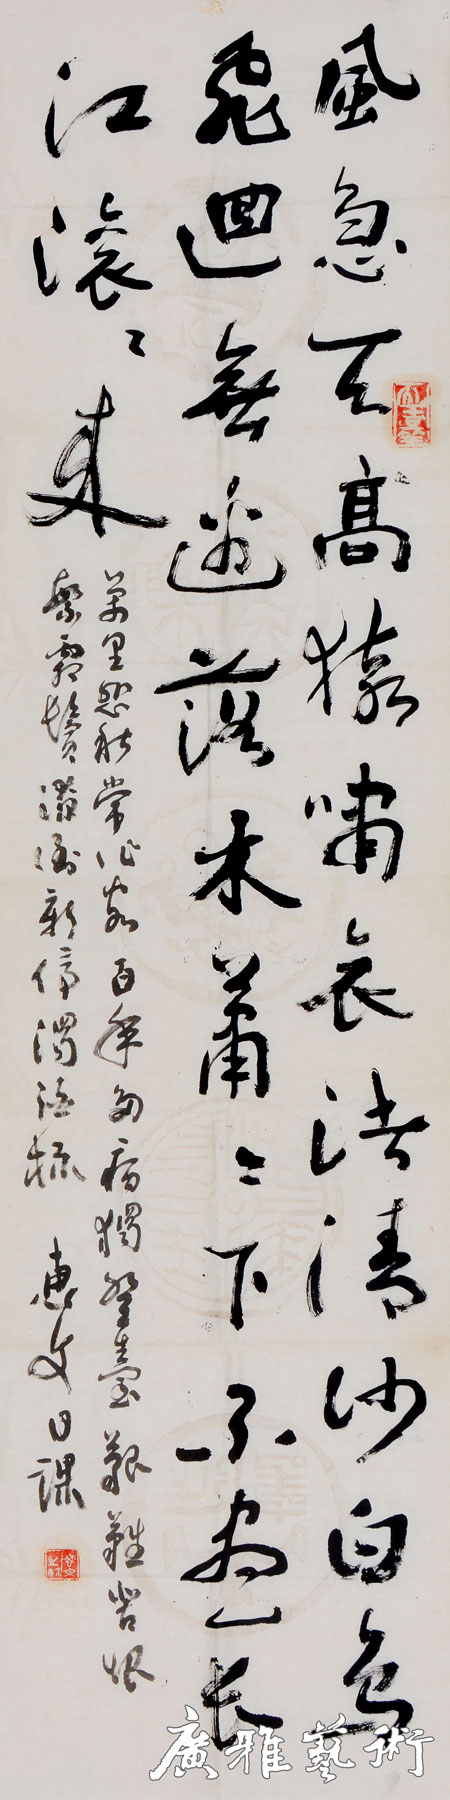 風急天高猿嘯哀渚清沙白鳥
飛迴無邊落木蕭〻下不盡長
江滾〻來
萬里悲秋常作客百年多病獨登臺艱難苦恨
繁霜鬢潦倒新停濁酒杯 惠文日課
廣雅藝術